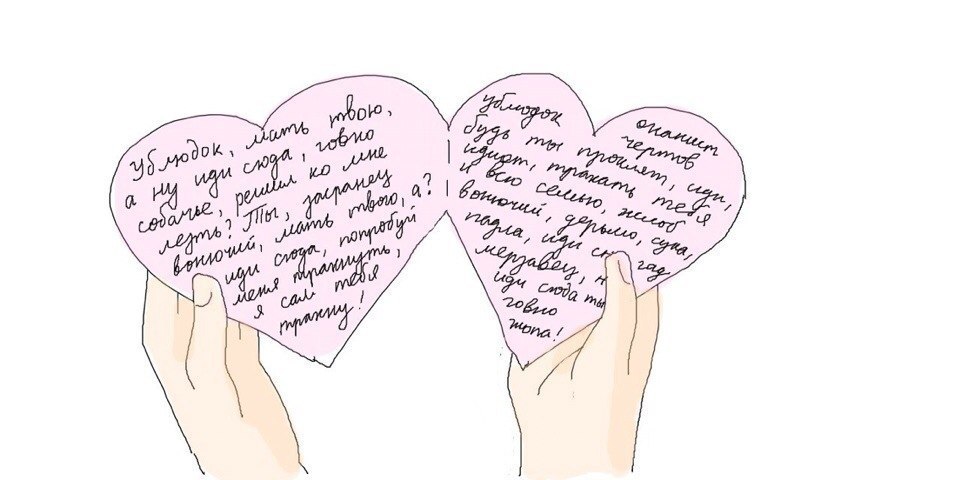 ублюдок, мать твою,
а ну иди сюда, говно
собачье, решил ко мне
лезть? Ты, засранец
вонючий, мать твою, а?
иди сюда, попробуй
меня трахнуть,
я сам тебя
трахну!
ублюдок
онанист
чертов
будь ты проклят, иди,
идиот, трахать тебя
и всю семью, жлоб
вонючий, дерьмо, сука,
падла, иди гад
мерзавец,
иди сюда ты
говно
жопа!